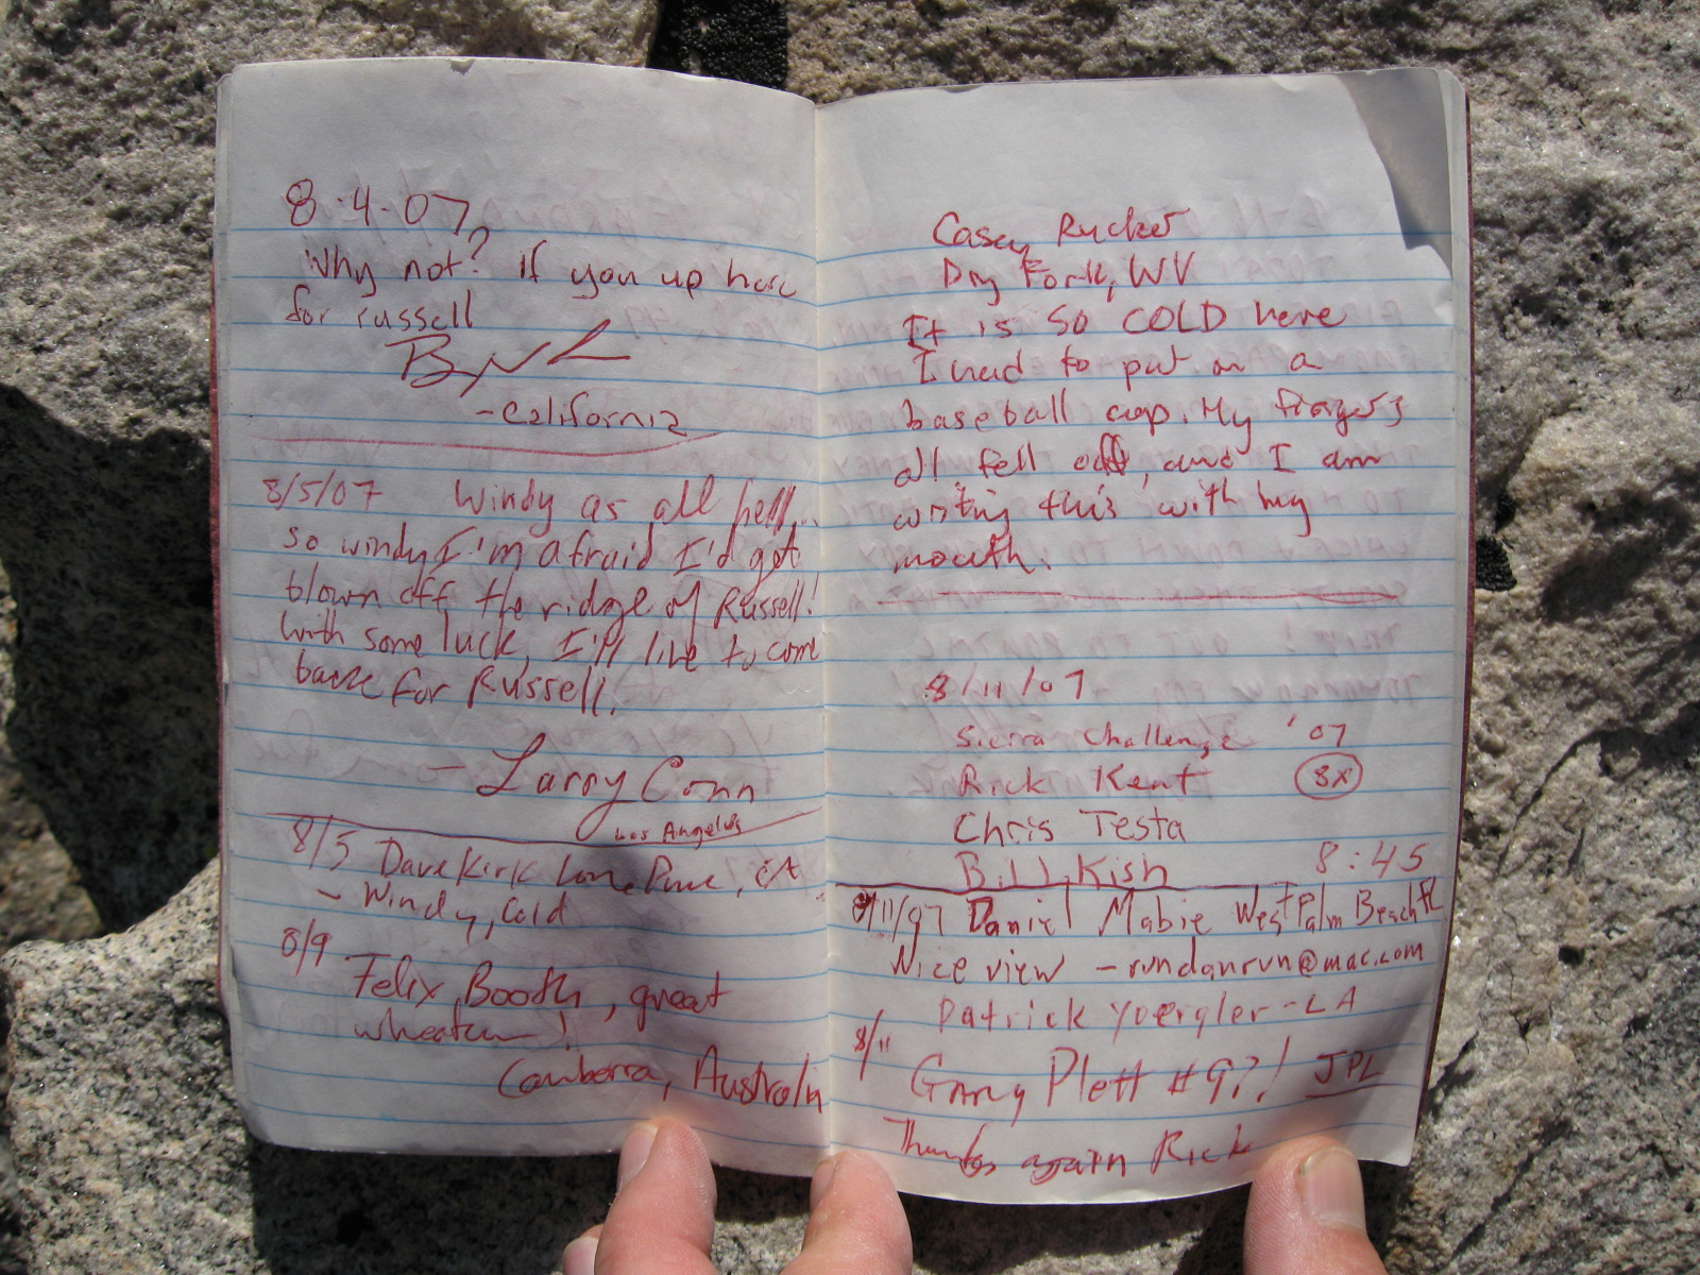 8-4-07
Why not? if you up here
for russell
-California
8/5/07 Windy as all hell...
so windy I'm afraid I'd get
blown off the ridge of Russell!
With some luck, I'll live to come
back for Russell.
- Larry Conn
Los Angeles
8/5 Dave Kirk Lone Pine, CA
- Windy, Cold
8/9
Felix Booth, great
Canberra, Australia
Casey Rucker
Dry Fork, WV
It is SO COLD here
I had to put on a
baseball cap. My fingers
all fell off, and I am
writing this with my
mouth.
8/11/07
Sierra Challenge '07
Rick Kent 8x
Chris Testa
Bill Kish 8:45
8/11/07 Daniel Mabie West Palm Beach FL
Nice view - rundanrun@mac.com
Patrick Yoergler - LA
8/11
Gary Plett #9?! JPL
Thanks again Rick